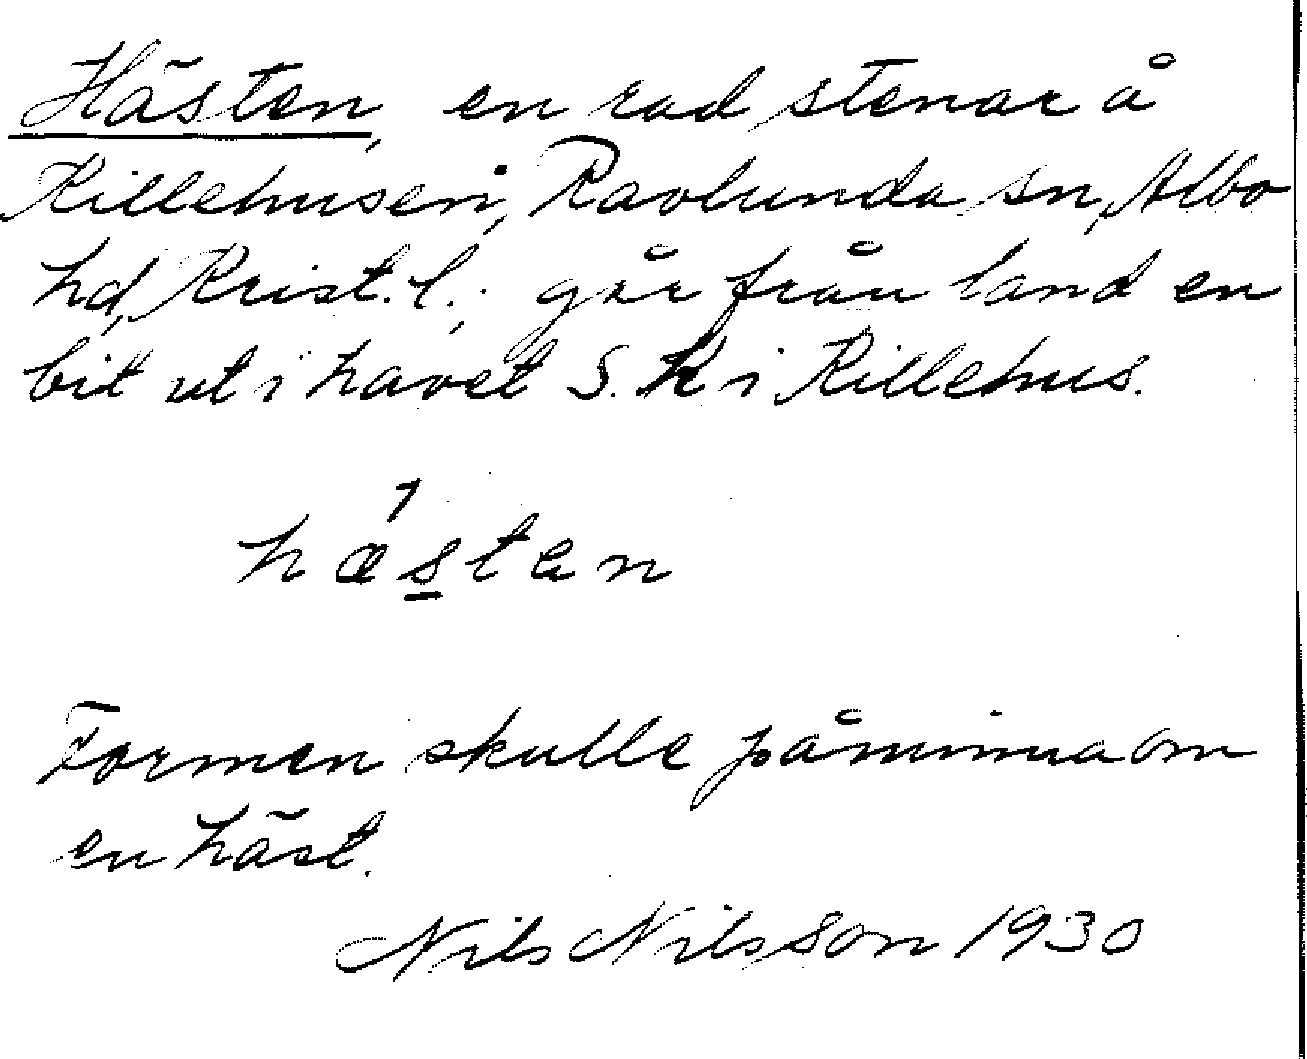 Hästen, en rad stenar å
Killehusen, Ravlunda sn, Albo
hd, Krist. l.; går från land en
bit ut i havet S. K i Killehus.
hæ´stan
Formen skulle påminna om
en häst.
Nils Nilsson 1930